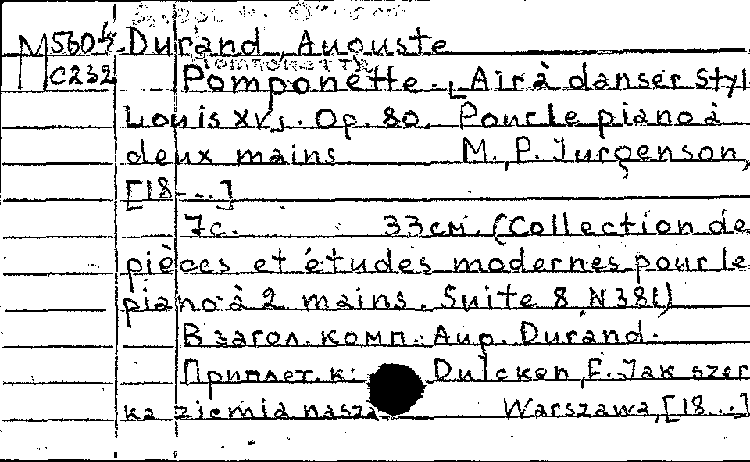 M5604 Durand, Auguste
C232 Pomponette. [Air à danser Styl
Louis XV]. Op. 80. Pour le piano à
deux mains M., P. Jurgenson,
[18-...]
7с. 33см. (Collection de
pièces et études modernes pour le
piano à 2 mains. Suite 8, N 381)
В загол. комп.: Aug. Durand.
Приплет. к: Dulcken, F. Jak szer
ka ziemia nasza Warszawa, [18...]